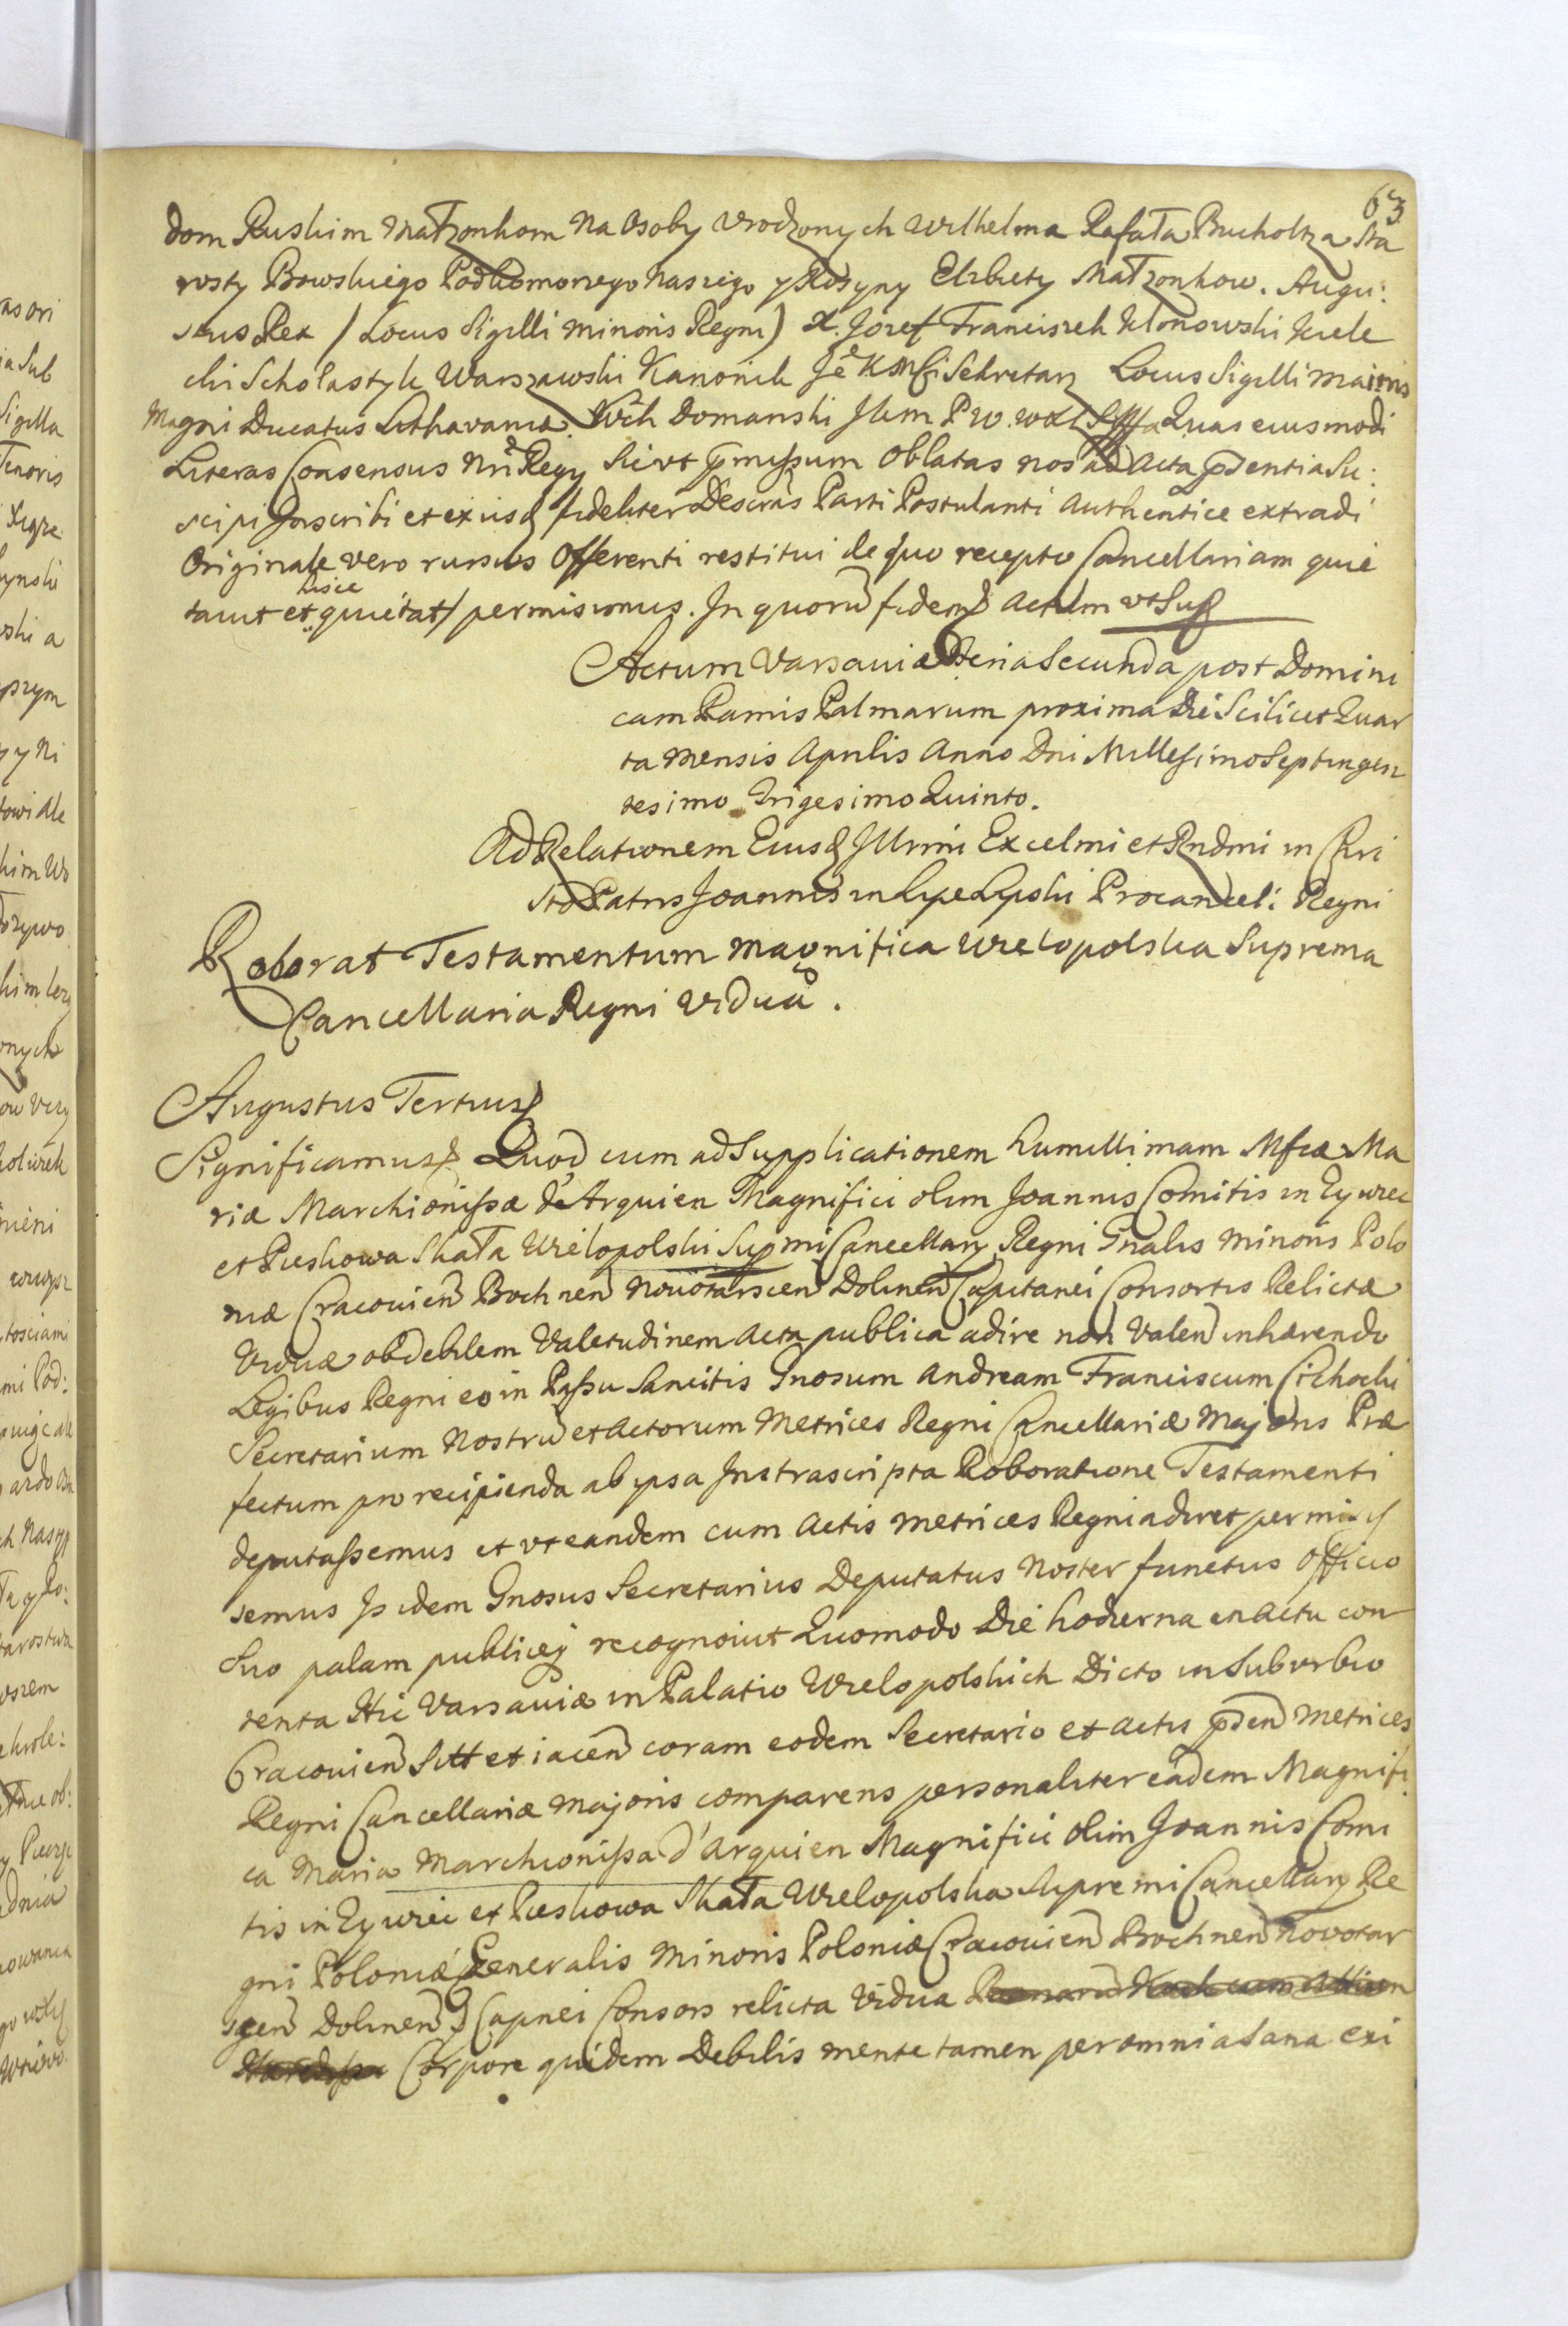 63
dom Ruskim Małzonkom na Osoby Urodzonych Wilhelma Rafała Bucholtza Sta
rosty Bowskiego Podkomorzego Naszego y Rozyny Elzbiety Małzonkow. Augu:
stus Rex / Locus Sigilli Minoris Regni) X. Jozef Franciszek Klonowski Kiele
cki Scholastyk Warszawski Kanonik Je KMsci Sekretarz Locus Sigilli Maioris
Magni Ducatus Lithavaniæ. Domanski Quas eiusmodi
Literas Consensus Nri Regy Sicvt pmissum Oblatas nos ad Acta pdentia Su:
scipi Inscribi et ex iisd fideliter Descrās Parti Postulanti Authentice extradi
Originale vero rursus Offerenti restitui de quo recepto Cancellariam quie
tauit et hisce quietat / permisimus. In quorū fidem Actum vt Sup
Actum Varsaviæ Feria Secunda post Domini
cam Ramis Palmarum proxima Die Scilicet Quar
ta Mensis Aprilis Anno Dni Millesimo Septingen
tesimo Trigesimo Quinto.
Ad Relationem Eiusd Illrmi Excelmi et Rndmi in Chri
sto Patris Joannis in Lipe Lipski Procancel: Regni
Roborat Testamentum Magnifica Wielopolska Suprema
Cancellaria Regni Vidua.
Augustus Tertius
Significamus Quod cum ad Supplicationem humillimam Mfcæ Ma
riæ Marchionissæ d'Arquien Magnifici olim Joannis Comitis in Zywiec
et Pieskowa Skała Wielopolski Supmi Cancellary Regni Gnalis Minoris Polo
niæ Cracovien Bochnen Novotarscen Dolinen Capitanei Consortis Relictæ
Viduæ ob debilem Valetudinem Acta publica adire non Valen inhærendo
Legibus Regni eo in Passu Sancitis Gnosum Andream Franciscum Cichocki
Secretarium Nostrū et Actorum Metrices Regni Cancellariæ Majoris Præ
fectum pro recipienda ab ipsa Infrascripta Roboratione Testamenti
deputassemus et vt eandem cum Actis Metrices Regni adiret permisis
semus Is idem Gnosus Secretarius Deputatus Noster functus Officio
Suo palam publiceq recognovit Quomodo Die hodierna in Actu con
tenta Hic Varsaviæ in Palatio Wielopolskich Dicto in Suburbio
Cracovien Sitt et iacen coram eodem Secretario et Actis pden Metrices
Regni Cancellariæ Majoris comparens personaliter eadem Magnifi
ca Maria Marchionissa d'Arquien Magnifici olim Joannis Comi
tis in Zywiec et Pieskowa Skała Wielopolska Supremi Cancellary Re
gni Poloniæ Generalis Minoris Poloniæ Cracovien Bochnen Novotar
scen Dolinen Capnei Consors relicta Vidua
Corpore quidem Debilis mente tamen per omnia Sana exi